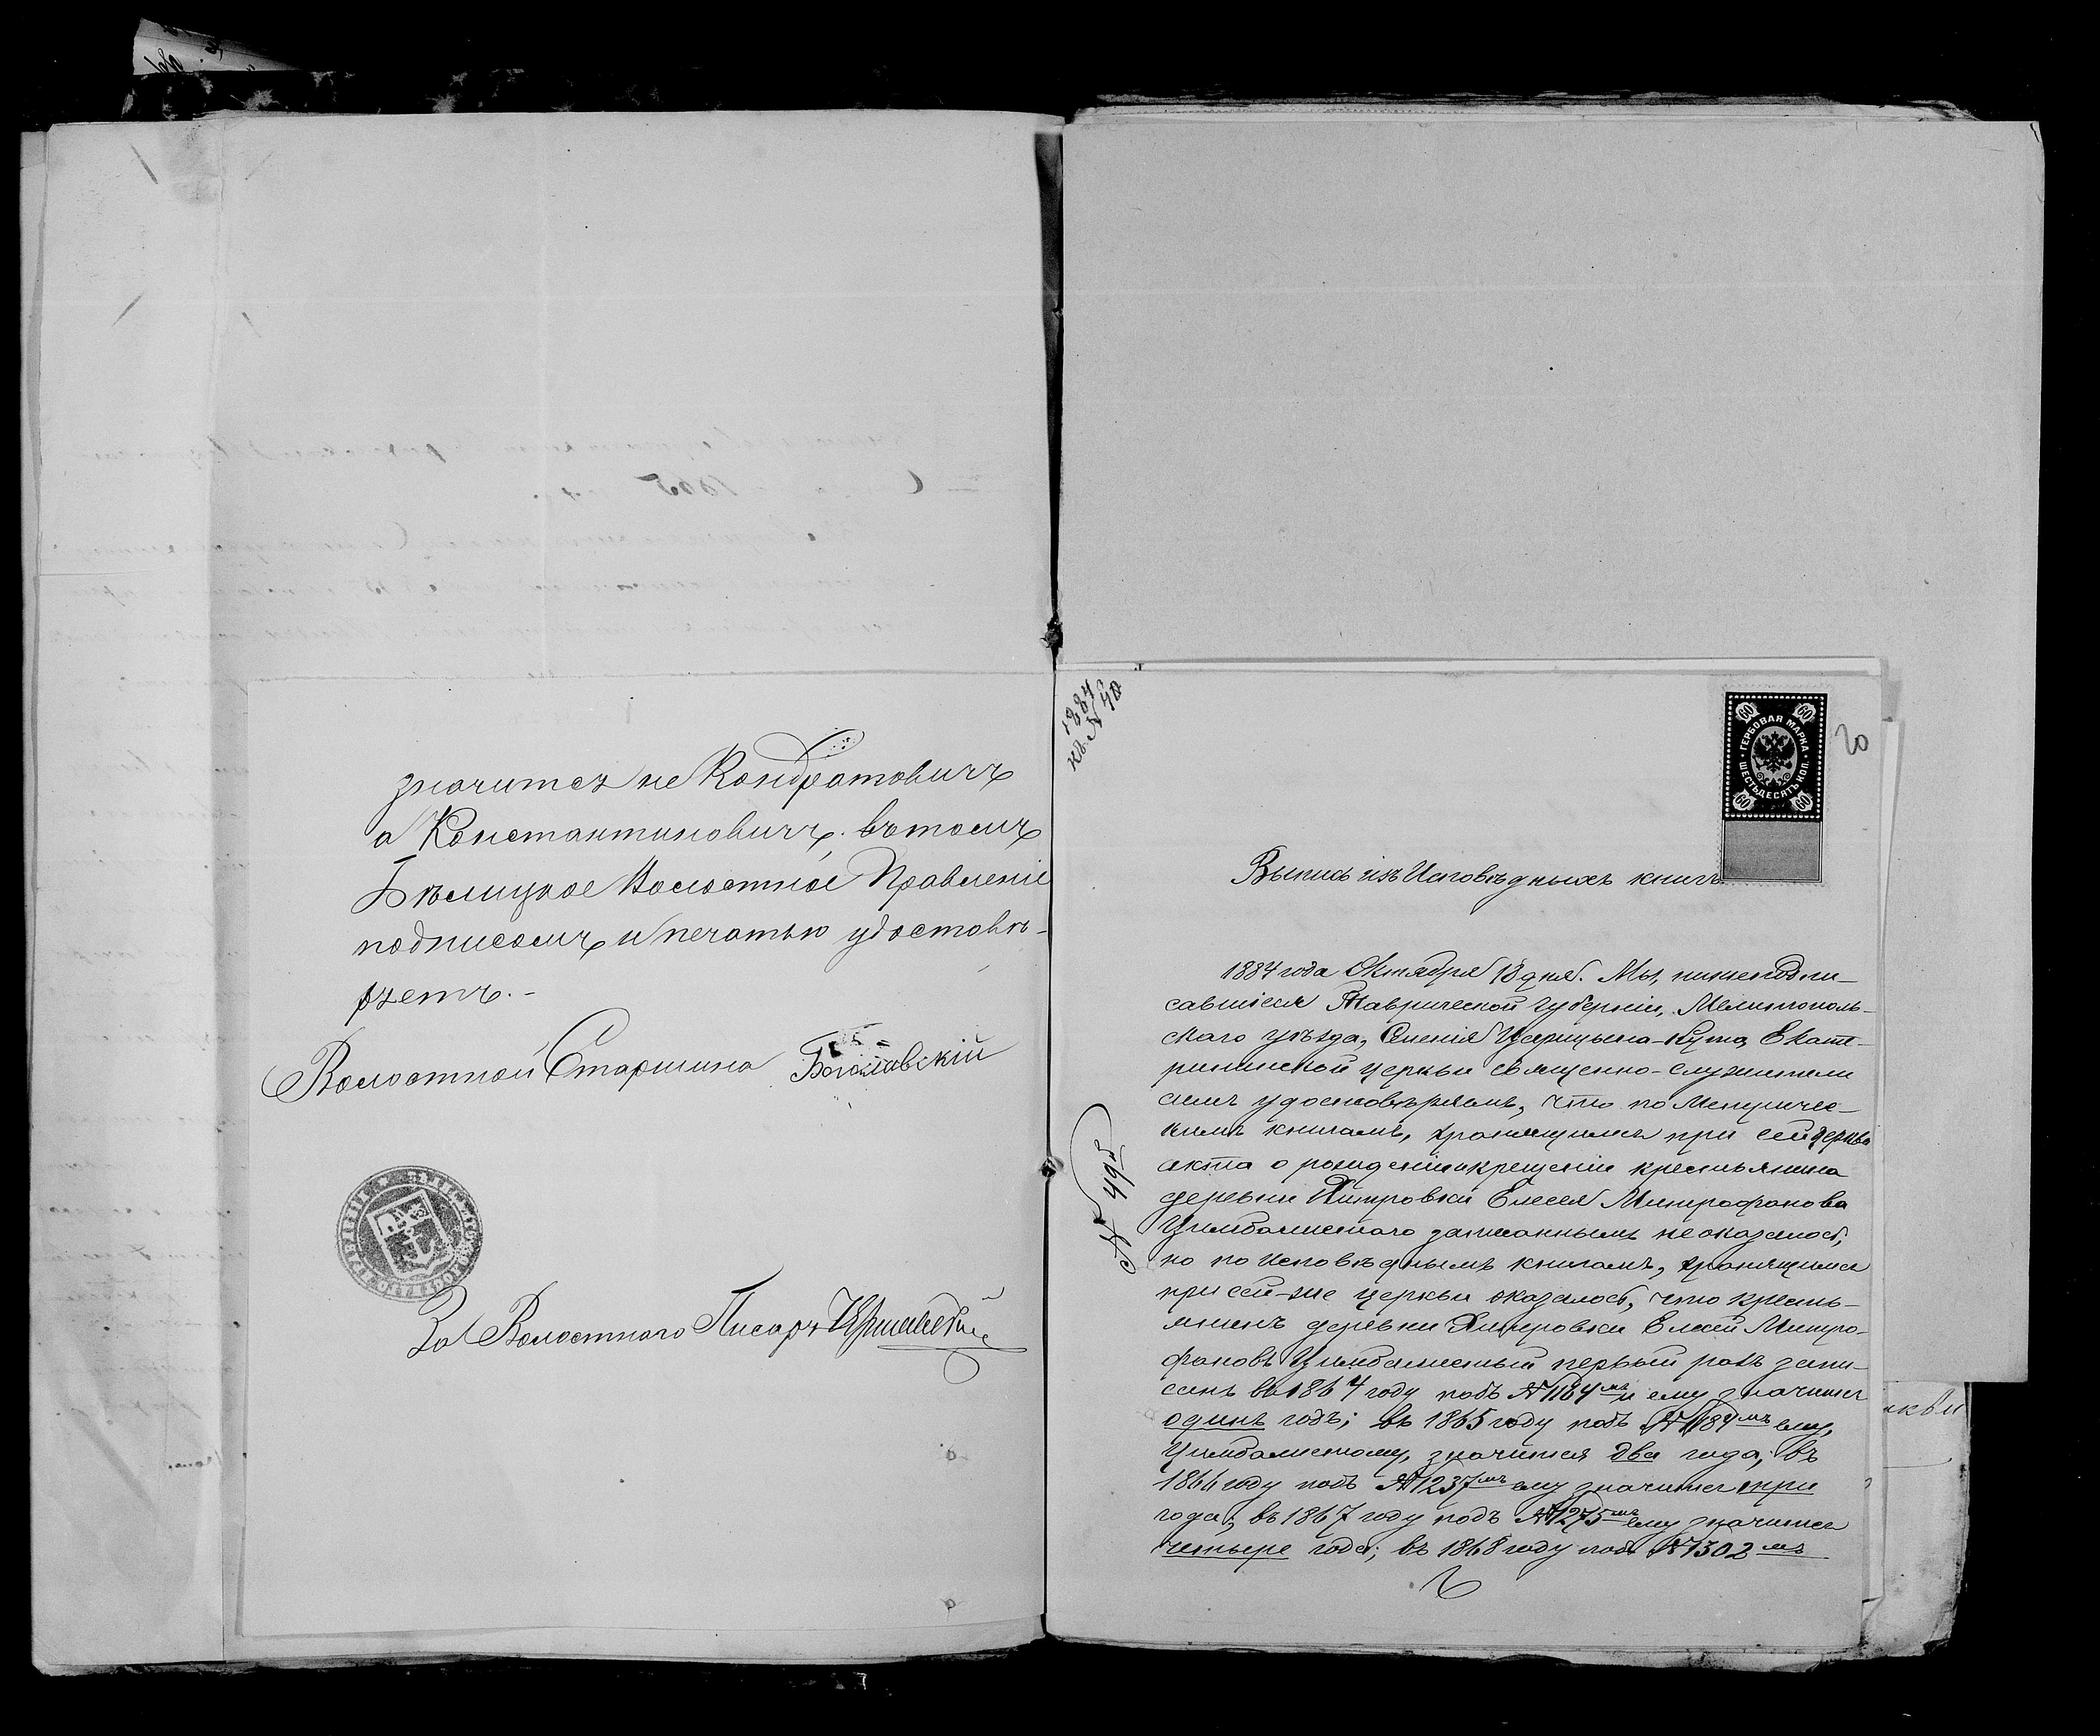 значится не Кондратовичъ
а Константиновичъ, въ томъ
Бѣлицкое Волостное Правленіе
подписомъ и печатью удостовѣ-
ряетъ.-
Волостной Старшина Богославскій
За Волостного Писаря
1884
къ № 40
20
60 60
ГЕРБОВАЯ МАРКА
ШЕСТЬДЕСЯТЪ КОП.
60 60
Выпись изъ Исповѣдныхъ книгъ
1884 года Октября 18 дня. Мы, нижеподпи-
савшіеся Таврической губерніи, Мелитополь-
скаго уѣзда, Селенія Царицына-Кута, Екате-
рининской церкви священно-служители
симъ удостовѣряемъ, что по Метричес-
кимъ книгамъ, хранящимся при сей церкви
акта о рожденіи и крещеніи крестьянина
деревни Елесея Митрофанова
Цимбалистаго записаннымъ не оказалось,
но по Исповѣднымъ книгамъ, хранящимся
при сей-же церкви оказалось, что кресть-
янинъ деревни Елесей Митро-
фановъ Цимбалистый первый разъ запи-
санъ въ 1864 году подъ № 1164мъ и ему значится
одинъ годъ; въ 1865 году подъ № 1184мъ ему,
Цимбалистому, значится два года; въ
1866 году подъ № 1237мъ ему значится три
года; въ 1867 году подъ № 1275мъ ему значится
четыре года; въ 1868 году подъ № 1302мъ
№ 495